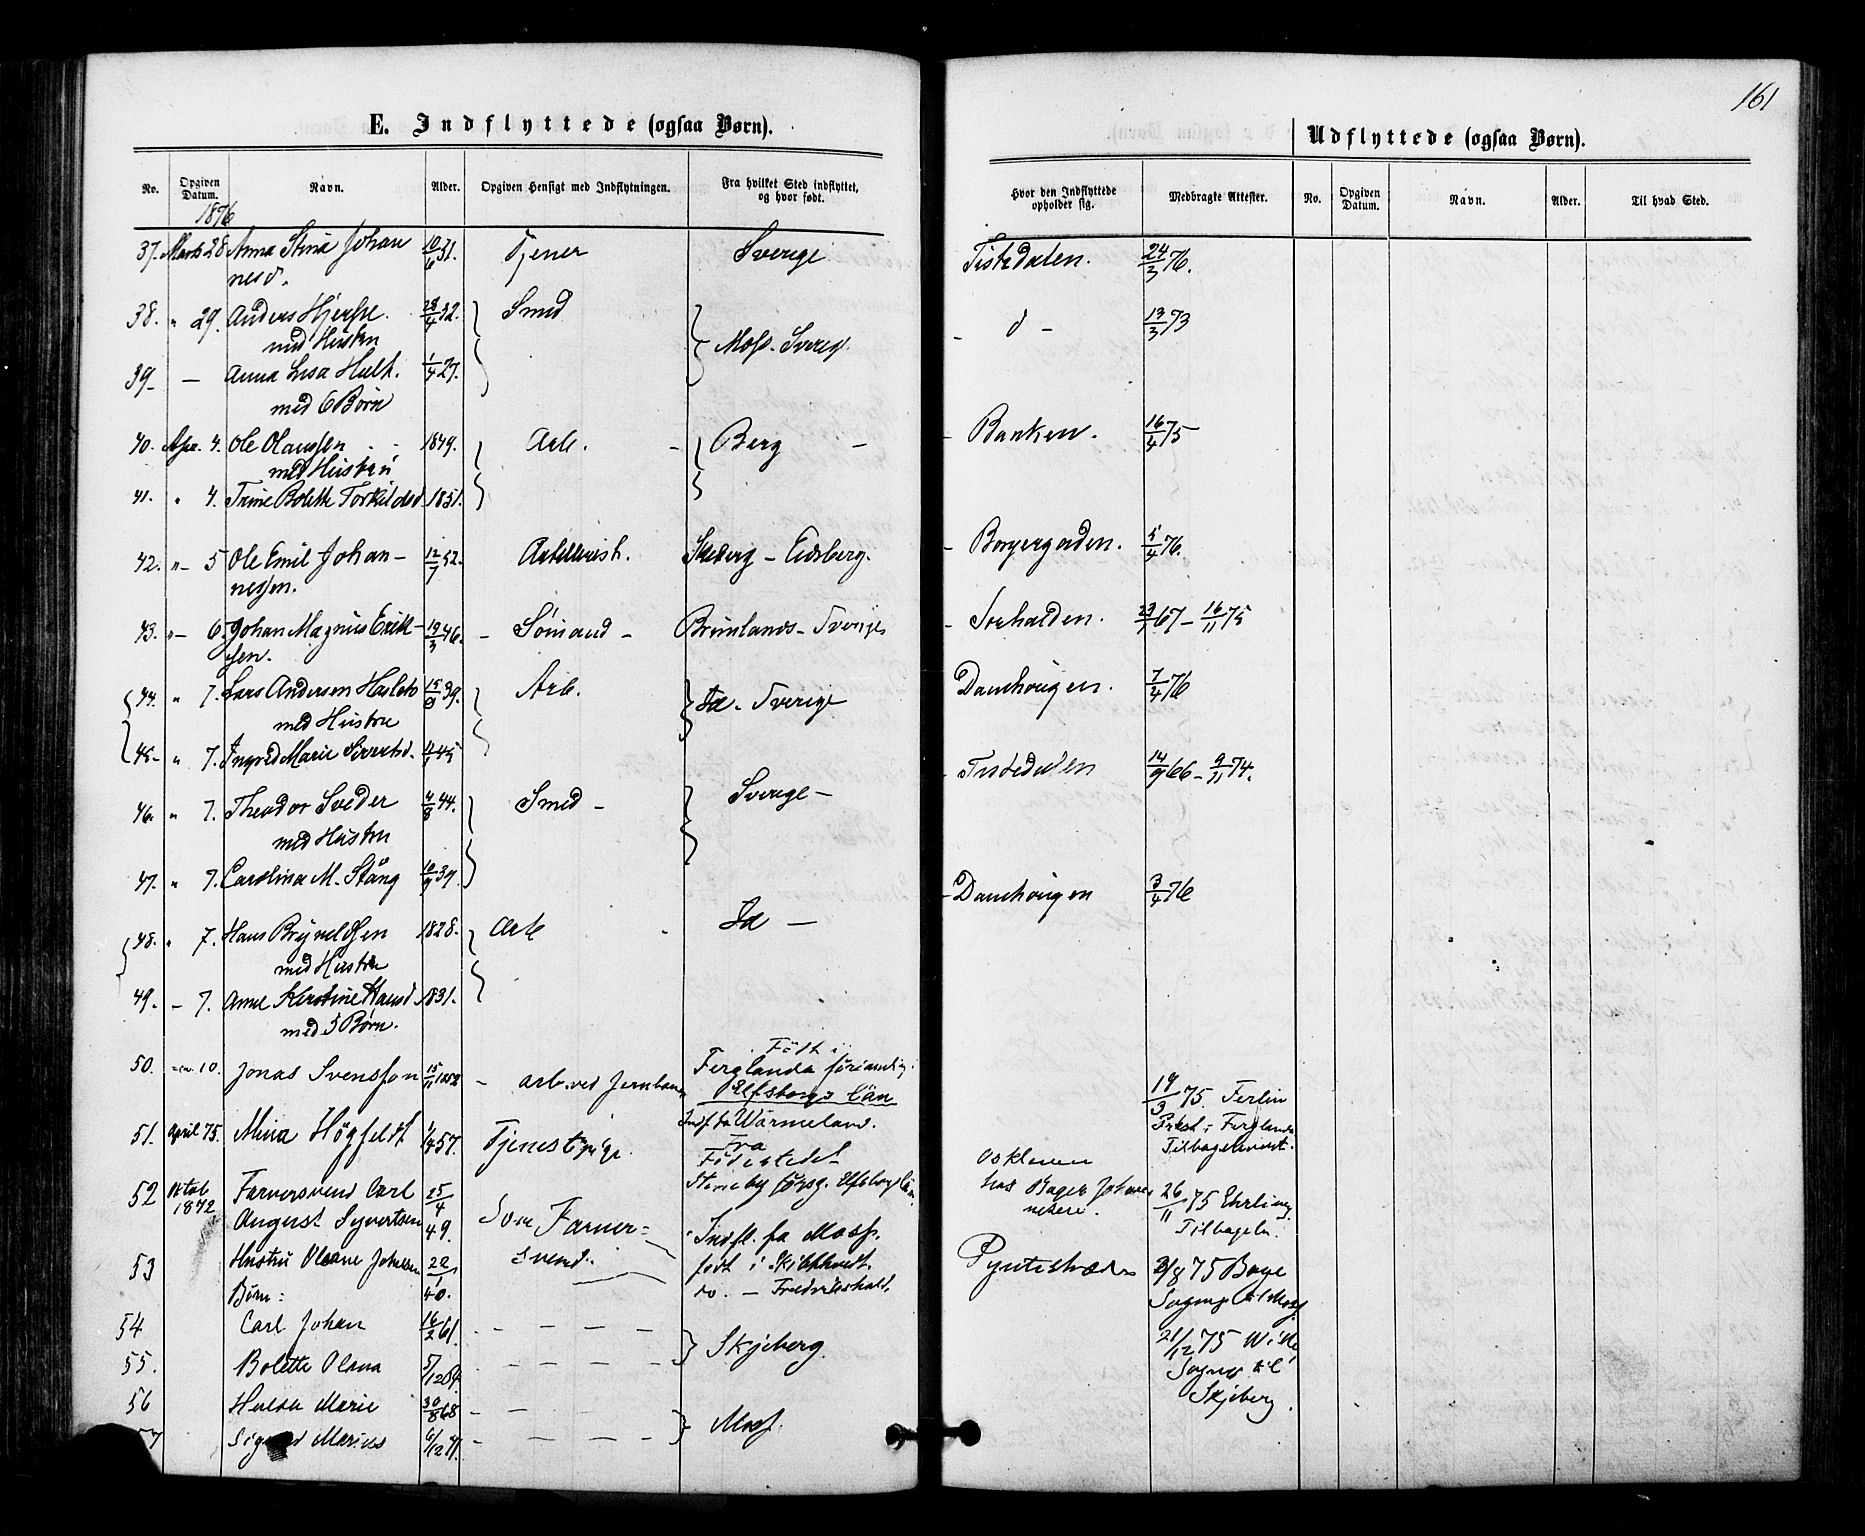 161
E. Indflyttede (ogsaa Børn).
Udflyttede (ogsaa Børn).
No. Opgiven Datum. Navn. Alder. Opgiven Hensigt med Indflytningen. Fra hvilket Sted indflyttet, og hvor født. Hvor den Indflyttede opholder sig. Medbragte Attester. No. Opgiven Datum. Navn. Alder. Til hvad Sted.
1876
37. Marts 28 Anna Stina Johan 10/6 31. Tjener Sverige Tistedalen. 24/3 76.
nesd.
38. " 29. Anders Hjerpe. 28/4 32. Smed - d - 13/3 73
med Hustru Moss. Sverig.
39. — Anna Lisa Hult. 1/4 27.
med 6 Børn
40. Apr. 4. Ole Olaussen 1849. Arb. - Berg - Banken. 16/4 75
med Hustru
41. " 4. Trine Bolette Torkildsd. 1851.
42. " - 5 Ole Emil Johan- 12/7 52. Artillerist. - Eidsberg. - Borgergaden. 5/4 76.
nessen.
43. " - 6. Johan Magnus Erik- 19/3 46. - Sømand - - Sverige - 23/ 67 - 16/11 75
sen.
44. " 7. Lars Andersen 15/ 39. Arb. Id. Sverige Damhougen. 7/4 76
med Hustru
45. " 7. Ingrid Marie Sivertsd. 45
- Tistedalen 14/9 66 - 9/11 74.
46. " 7. Theodor Sveder 4/8 44. Smed - Sverige -
med Hustru
47. " 7. Carolina M. Stång 10/9 39. - Damhougen 3/4 76
48. " 7. Hans Brynildsen 1828. Arb Id —
med Hustru
49. - 7. Anne Kirstine Hansd. 1831.
med 5 Børn.
50. 10. Jonas Svensson 15/11 1852 - Arb. ved Jernbanen Født i
Ferglanda församling.
Elfsborgs Län 19/3 75. Ferlin
Præst i Ferglanda
51. April 75. Mina Högfeldt 1/4 57. Tjenestepige. Indf. fra Wärmeland. Tilbagelevert.
Fra
Fødestedet
52 Oktob 1872 Farversvend Carl 25/4 49. Stenebyførsg. Elfsborgs län. hos Bager Johan 26/11 75 Ehrling.
August Syvertsen Som Farver- Indfl. fra Moss. Tilbagelv.
53 Hustru Oleane Johnsen 22/1 40. svend. født i Skibthvedt. 3/8 75 Bøye
Børn: do. - Fredrikshald. Sognep. til Moss.
54 Carl Johan 16/2 61. - — — — Skjeberg. 21/12 75 Wille
55. Bolette Olana 5/12 64. - — — — Sognep. til
56 Hulda Marie 30/8 68 - — Moss. Skjeberg.
57 Sigurd Marius 6/12 71. - — — —